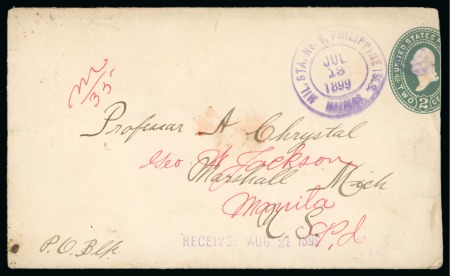 MIL. STA. No. 3, PHILIPPINE ISLS.
JUL
18
1899
UNITED STATES
TWO CE
2
M/35
Professor A Chrystal
Geo Jackson
Marshall Mich
Manila
U S
P.I
P.O. Blk.
RECEIVE AUG 21 1899